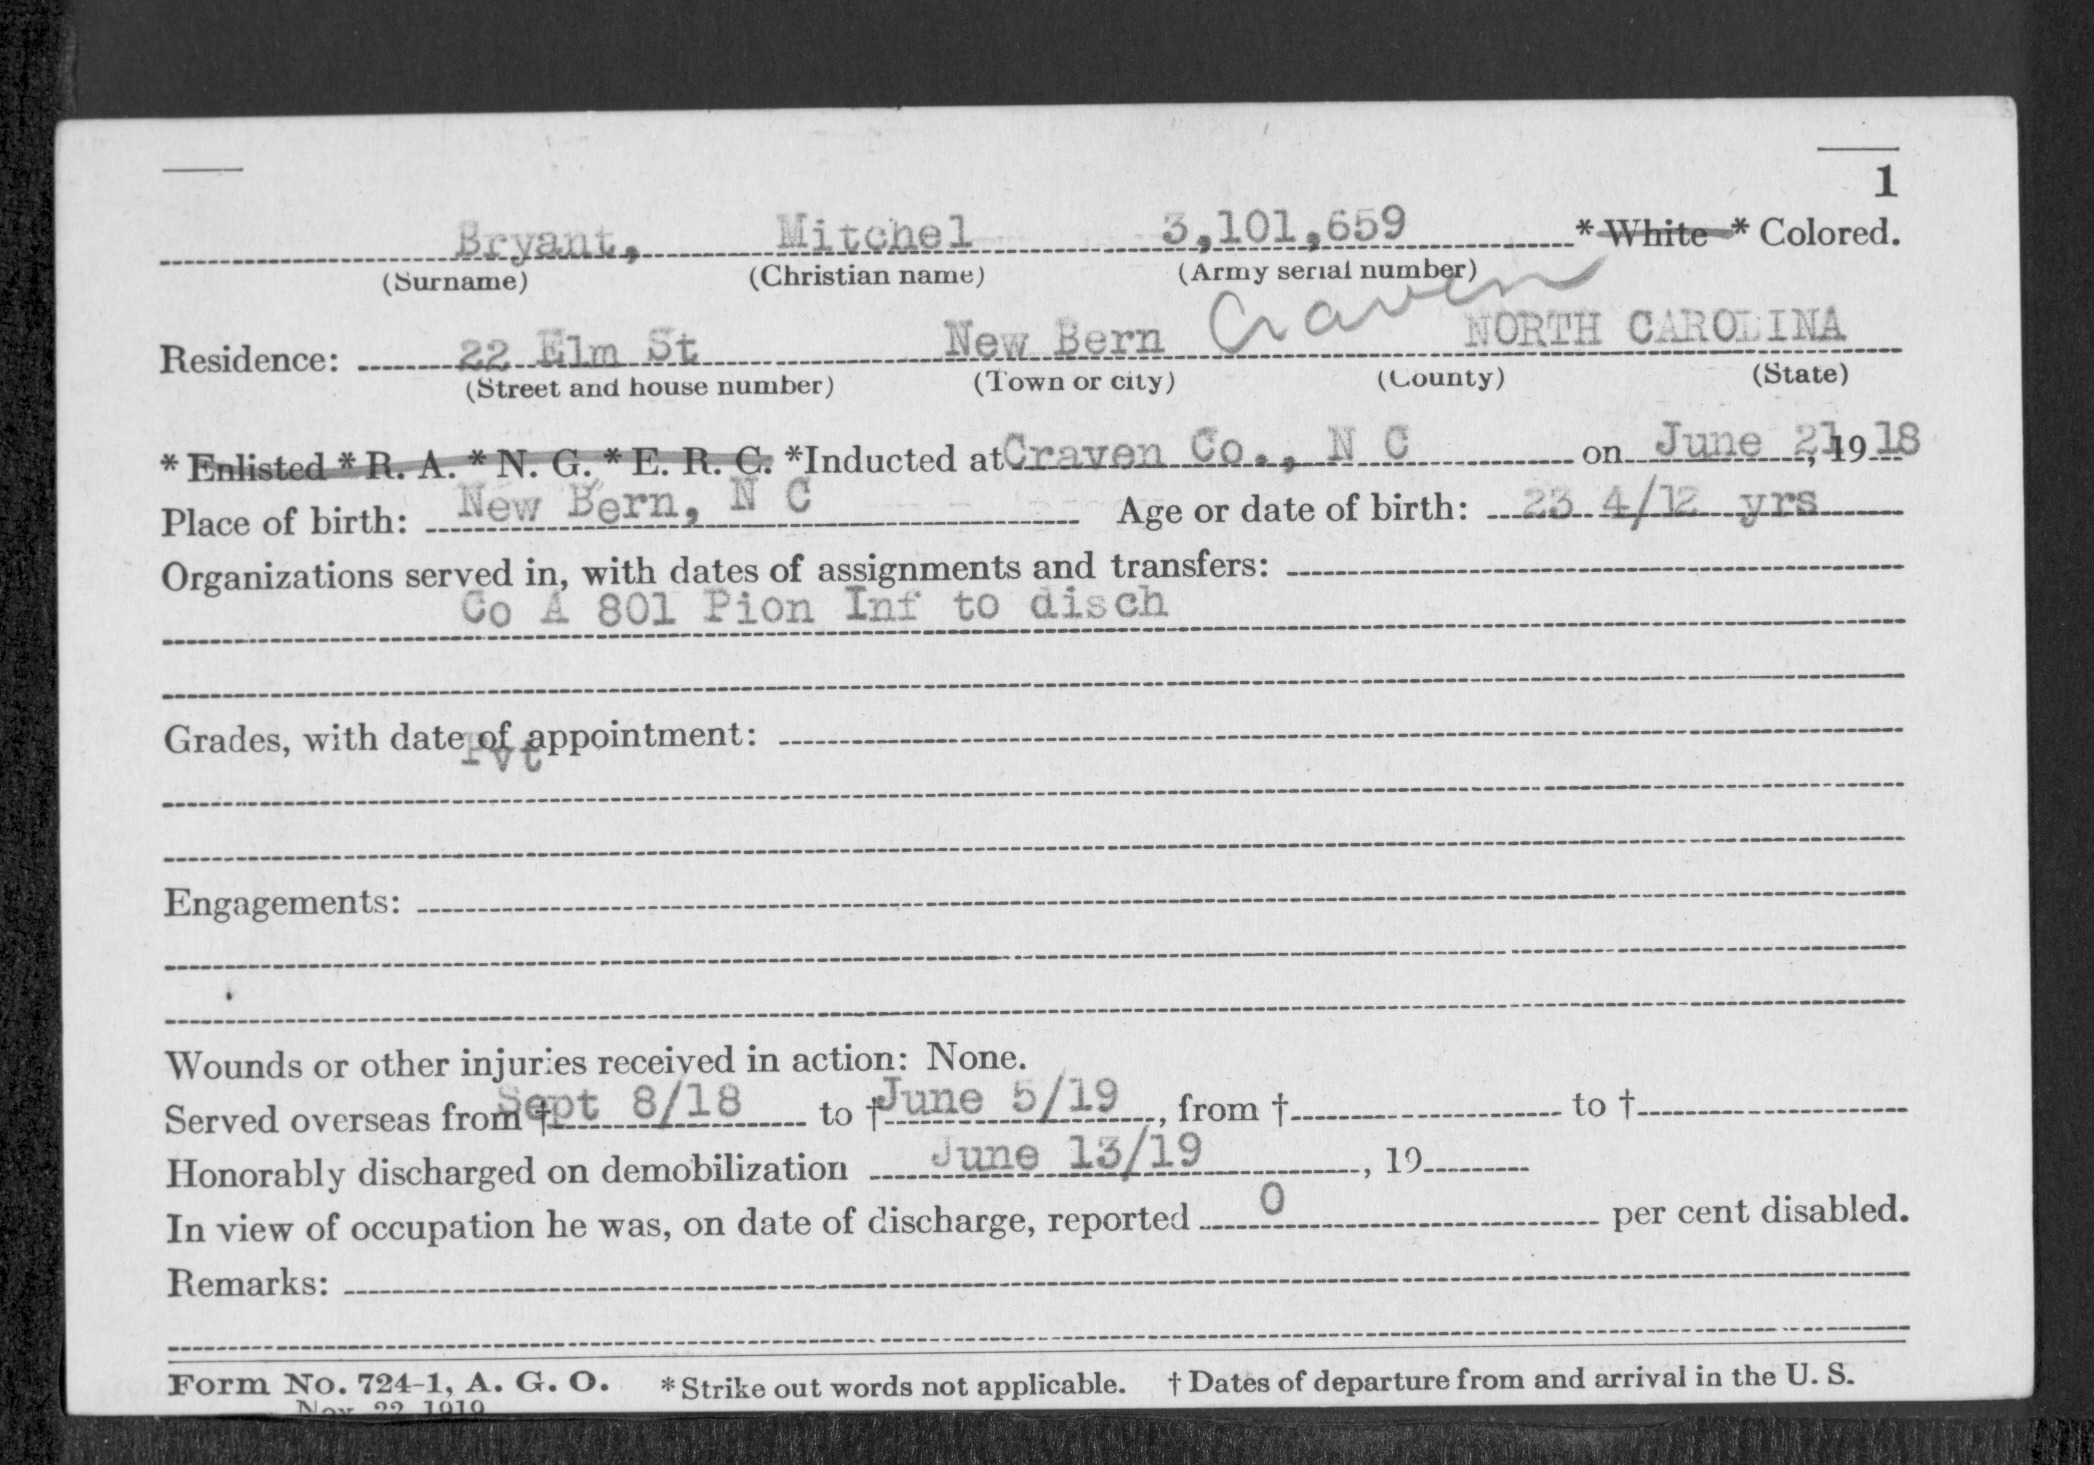 1
Bryant, Mitchel 3,101,659 * White * Colored.
(Surname) (Christian name) (Army serial number)
Residence: 22 Elm St New Bern Craven NORTH CAROLINA
(Street and house number) (Town or city) (County) (State)
* Enlisted * R. A. * N. G. * E. R. C. *Inducted at Craven Co., N C on June 21, 19 18
Place of birth: New Bern, N C Age or date of birth: 23 4/12 yrs
Organizations served in, with dates of assignments and transfers:
Co A 801 Pion Inf to disch
Grades, with date of appointment:
Pvt
Engagements:
Wounds or other injuries received in action: None.
Served overseas from † Sept 8/18 to † June 5/19, from † to †
Honorably discharged on demobilization June 13/19, 19
In view of occupation he was, on date of discharge, reported 0 per cent disabled.
Remarks:
Form No. 724-1, A. G. O. * Strike out words not applicable. † Dates of departure from and arrival in the U. S.
Nov. 22, 1919